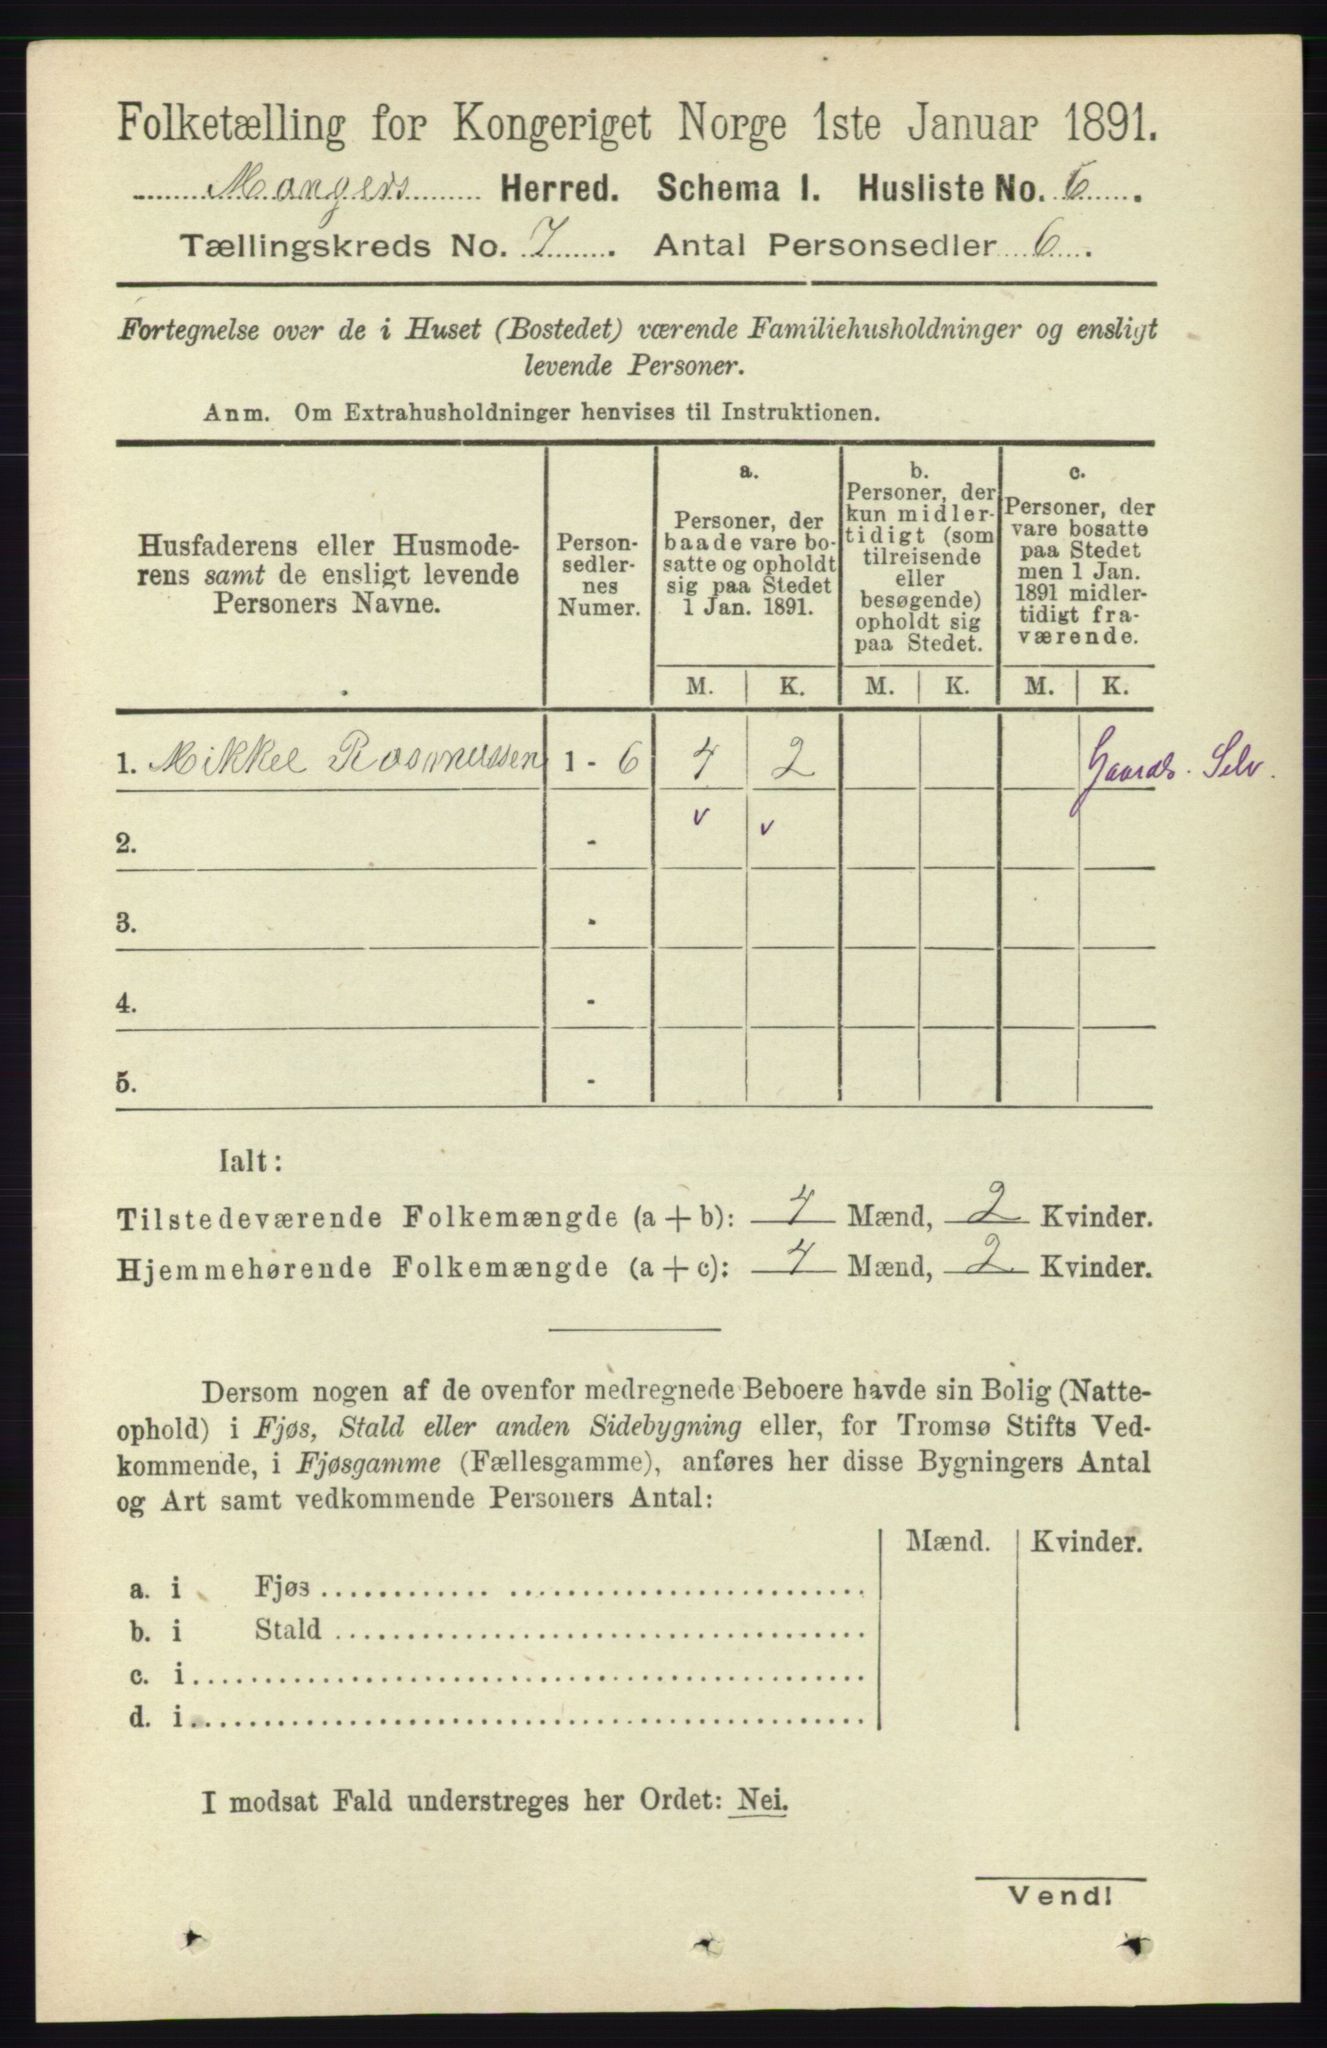 Folketælling for Kongeriget Norge 1ste Januar 1891.
Mangers Herred. Schema I. Husliste No. 6.
Tællingskreds No. 7. Antal Personsedler 6.
Fortegnelse over de i Huset (Bostedet) værende Familiehusholdninger og ensligt
levende Personer.
Anm. Om Extrahusholdninger henvises til Instruktionen.
Husfaderens eller Husmode-
rens samt de ensligt levende
Personers Navne.
Person-
sedler-
nes
Numer.
a.
Personer, der
baade vare bo-
satte og opholdt
sig paa Stedet
1 Jan. 1891.
b.
Personer, der
kun midler-
tidigt (som
tilreisende
eller
besøgende)
opholdt sig
paa Stedet.
c.
Personer, der
vare bosatte
paa Stedet
men 1 Jan.
1891 midler-
tidigt fra-
værende.
M. K. M. K. M. K.
1. Mikkel Rasmussen 1 - 6 4 2 Gaardb. Selv.
v v
2. -
3. -
4. -
5. -
Ialt:
Tilstedeværende Folkemængde (a + b): 4 Mænd, 2 Kvinder.
Hjemmehørende Folkemængde (a + c): 4 Mænd, 2 Kvinder.
Dersom nogen af de ovenfor medregnede Beboere havde sin Bolig (Natte-
ophold) i Fjøs, Stald eller anden Sidebygning eller, for Tromsø Stifts Ved-
kommende, i Fjøsgamme (Fællesgamme), anføres her disse Bygningers Antal
og Art samt vedkommende Personers Antal:
Mænd. Kvinder.
a. i Fjøs
b. i Stald
c. i
d. i
I modsat Fald understreges her Ordet: Nei.
Vend!